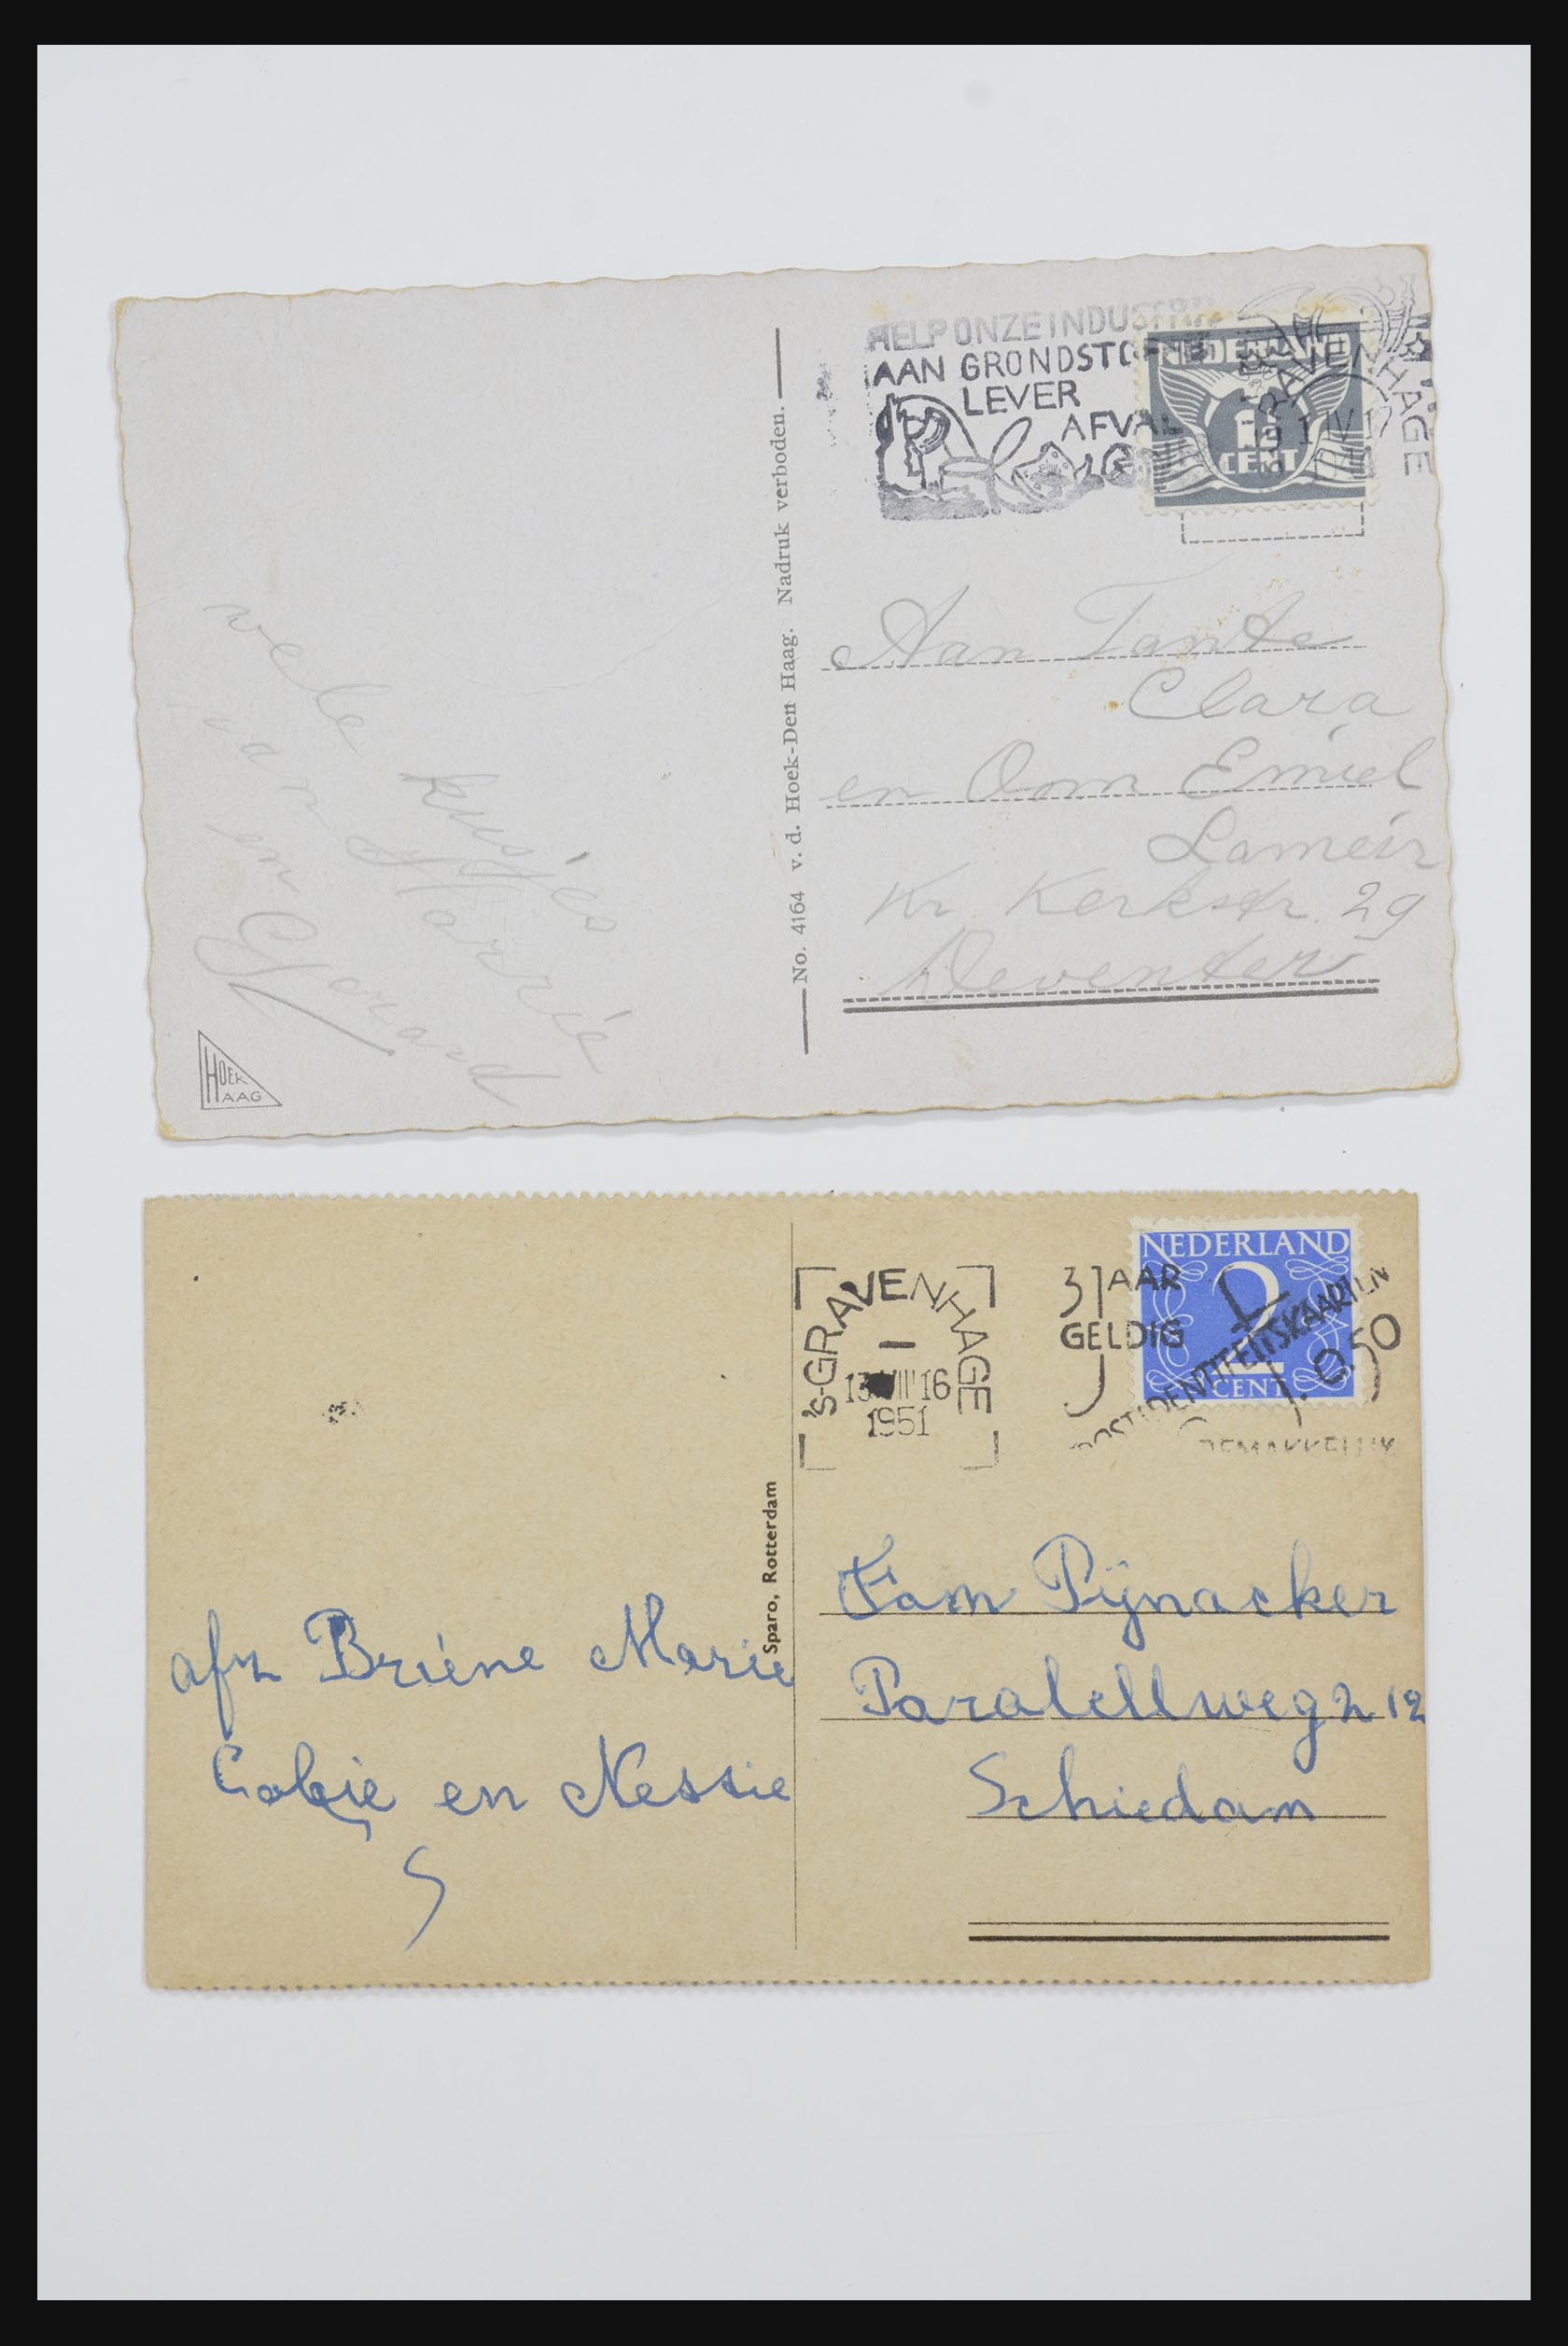 HELP ONZE INDUSTRIE
AAN GRONDSTOFFEN
LEVER
AFVAL
NEDERLAND
1½
CENT
GRAVENHAGE
Aan Tante
Clara
en Oom Emiel
Lameir
Kr. Kerkstr. 29
Deventer
vele kusjes
van Marrie
en Gerard
No. 4164 v. d. Hoek-Den Haag. Nadruk verboden.
HOEK
HAAG
'S-GRAVENHAGE
13 VIII 16
1951
3 JAAR
GELDIG
POSTIDENTITEITSKAARTEN
f. 0.50
GEMAKKELIJK
NEDERLAND
2
CENT
Fam Pijnacker
Paralellweg 212
Schiedam
afz Briene Marie
Cobie en Nessie
Sparo, Rotterdam